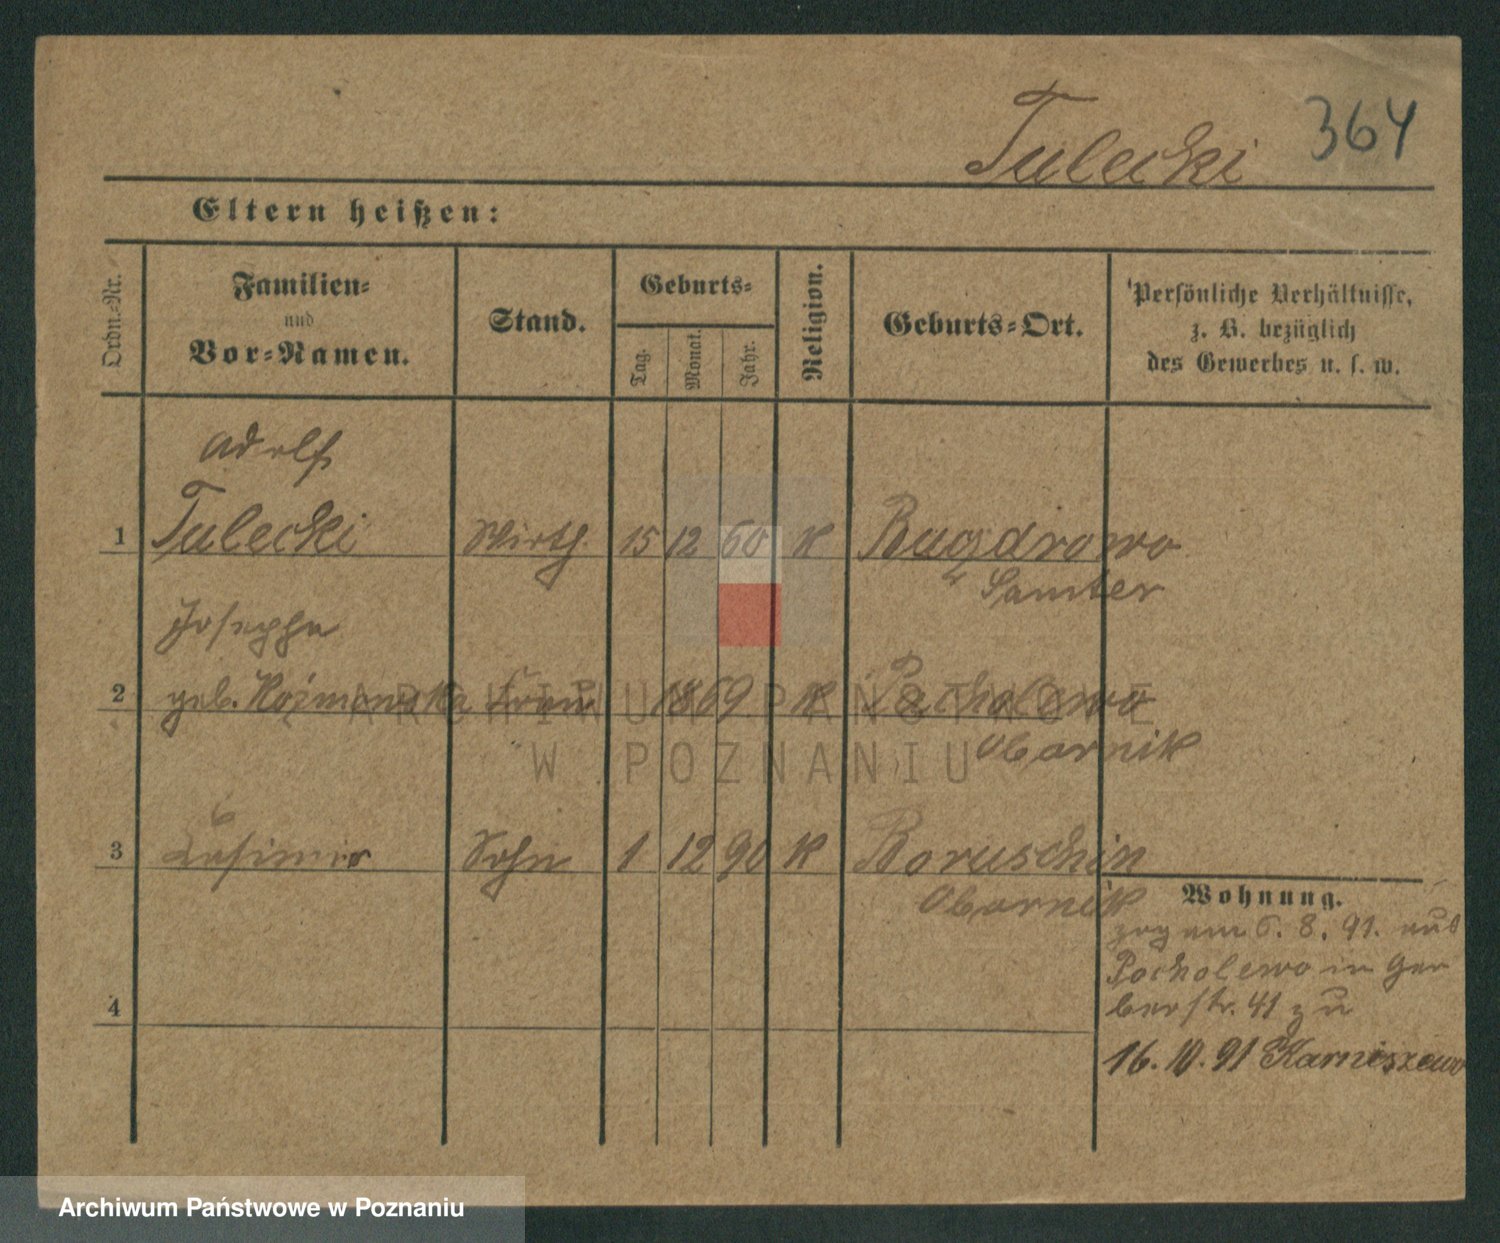 Tulecki 364
Eltern heißen:
Ordn.-Nr.
Familien-
und
Vor-Namen.
Stand.
Geburts-
Tag.
Monat.
Jahr.
Religion.
Geburts-Ort.
Persönliche Verhältnisse,
z. B. bezüglich
des Gewerbes u. s. w.
Adolf
1 Tulecki Wirth 15 12 60 K Bagdrowo
Samter
Josepha
2 geb. Frau 1869 K Pacholewo
Obornik
3 Casimir Sohn 1 12 90 K Boruschin
Obornik
Wohnung.
zog am 6. 8. 91. aus
Pocholewo in Ger
berstr. 41 zu
4
16.10.91 Karniszewo
ARCHIWUM PAŃSTWOWE
W POZNANIU
Archiwum Państwowe w Poznaniu